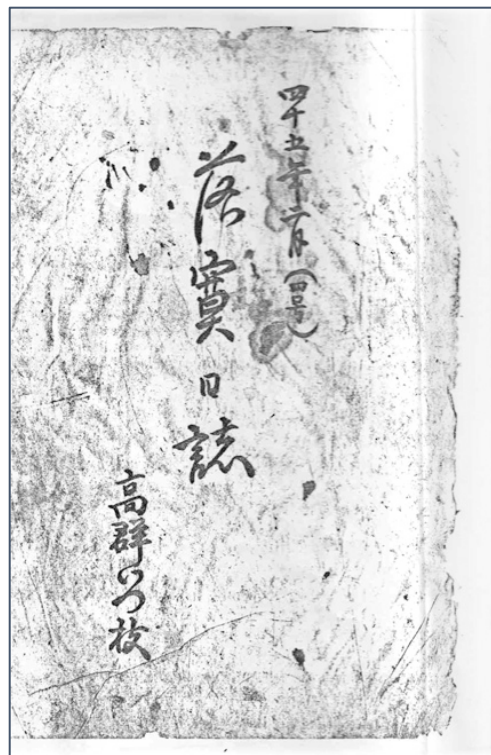 四十五年二月(四号)
落實日誌
高群いつ枝